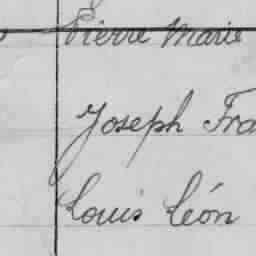 Pierre Marie
Joseph Fra
Louis Léon